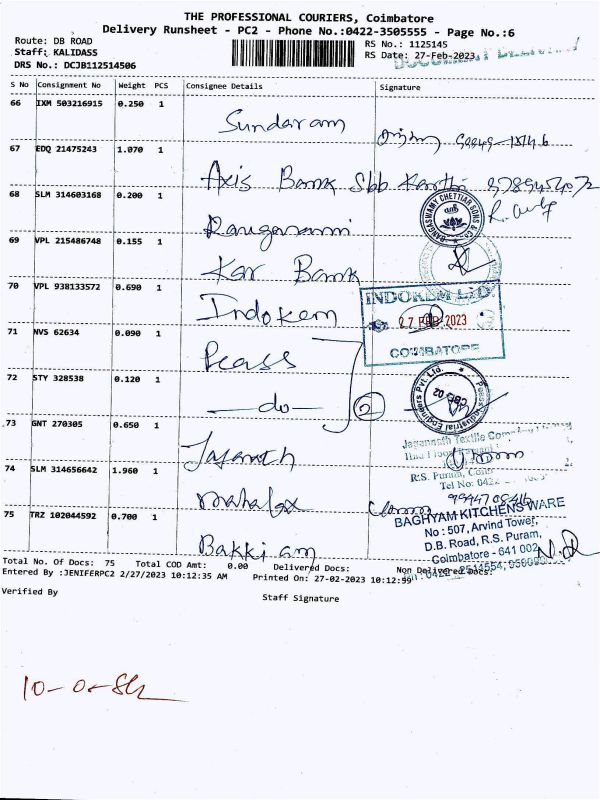 THE PROFESSIONAL COURIERS, Coimbatore
Delivery Runsheet - PC2 - Phone No.:0422-3505555 - Page No.:6
Route: DB ROAD
Staff: KALIDASS
DRS No.: DCJB112514506
RS No.: 1125145
RS Date: 27-Feb-2023
S No Consignment No Weight PCS Consignee Details Signature
66 IXM 503216915 0.250 1 Sundaram
67 EDQ 21475243 1.070 1 Axis Bank Sbb
68 SLM 314603168 0.200 1 Rangasami
RANGASWAMY CHETTIAR SONS & CO
69 VPL 215486748 0.155 1 Kar Bank
70 VPL 938133572 0.690 1 Indokem
INDOKEM LTD
27 FEB 2023
COIMBATORE
71 NVS 62634 0.090 1 Peass
72 STY 328538 0.120 1 do 2
Peass Industrial Engineers Pvt. Ltd.
73 GNT 270305 0.650 1 Jaganath
Jagannath Textile
R.S. Puram,
Tel No: 0422
74 SLM 314656642 1.960 1
75 TRZ 102044592 0.700 1 Bakkiam
BAGHYAM KITCHENSWARE
No : 507, Arvind Tower,
D.B. Road, R.S. Puram,
Coimbatore - 641 002
Total No. Of Docs: 75 Total COD Amt: 0.00 Delivered Docs: Non Delivered Docs:
Entered By :JENIFERPC2 2/27/2023 10:12:35 AM Printed On: 27-02-2023 10:12:59
Verified By Staff Signature